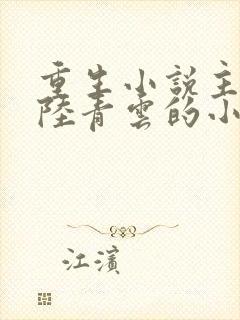 重生小說主
陸青雲的小
江濱